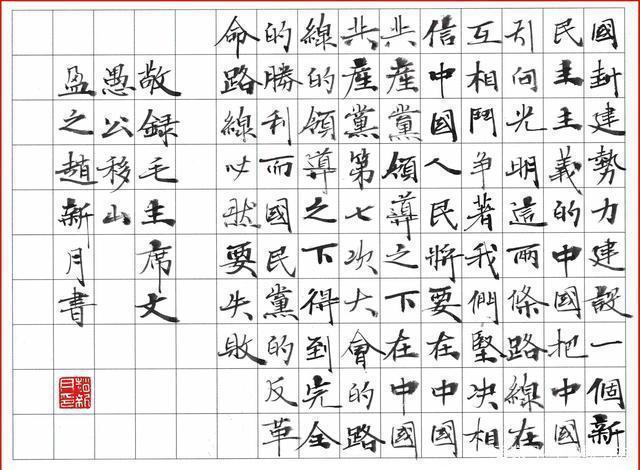 國封建勢力建設一個新
民主主義的中國把中國
引向光明這兩條路線在
互相鬥争著我們堅決相
信中國人民將要在中國
共產黨領導之下在中國
共產黨第七次大會的路
線的領導之下得到完全
的勝利而國民黨的反革
命路線必然要失敗
敬録毛主席文
愚公移山
盈之趙新月書
趙新月印